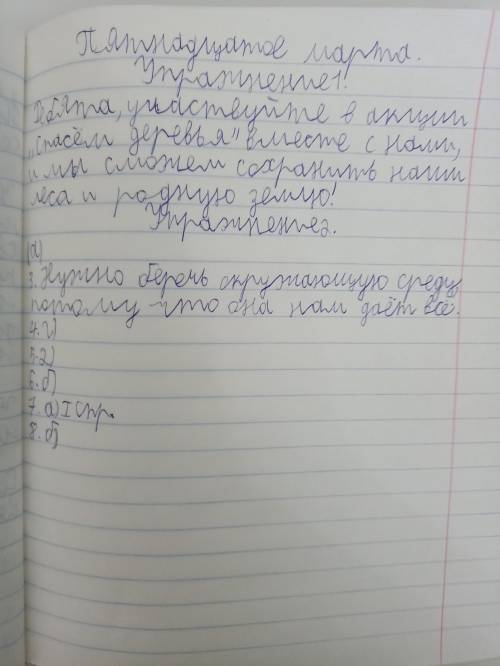 Пятнадцатое марта.
Упражнение1.
Ребята, участвуйте в акции
„Спасём деревья" вместе с нами,
и мы сможем сохранить наши
леса и родную землю!
Упражнение2.
а)
3. Нужно беречь окружающую среду
потому-что она нам даёт всё.
4. г)
5. 2)
6. б)
7. а) I спр.
8. б)